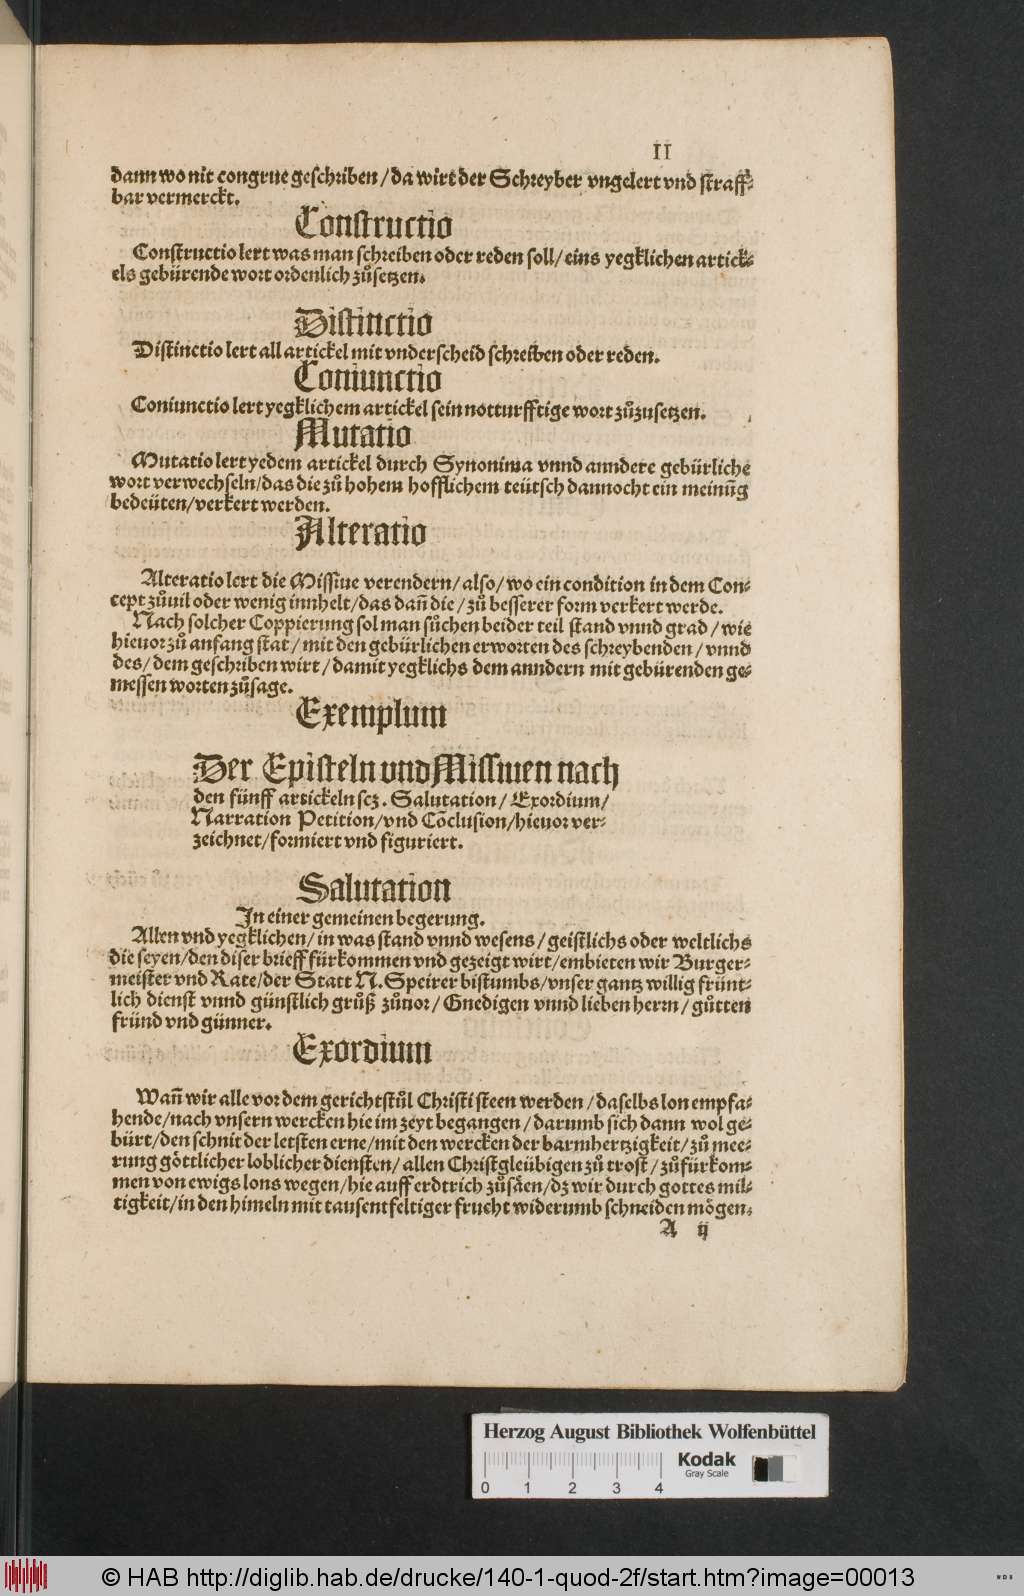 II
dann wo nit congrue geschriben / da wirt der Schreyber vngelert vnd straff⸗
bar vermerckt.
Constructio
Constructio lert was man schreiben oder reden soll / eins yegklichen artick⸗
els gebürende wort ordenlich zůsetzen.
Distinctio
Distinctio lert all artickel mit vnderscheid schreiben oder reden.
Coniunctio
Coniunctio lert yegklichem artickel sein notturfftige wort zůzusetzen.
Mutatio
Mutatio lert yedem artickel durch Synonima vnnd anndere gebürliche
wort verwechseln/das die zů hohem hofflichem teütsch dannocht ein meinūg
bedeüten/verkert werden.
Alteratio
Alteratio lert die Missiue verendern/ also/ wo ein condition in dem Con⸗
cept zůuil oder wenig innhelt/das dañ die / zů besserer form verkert werde.
Nach solcher Coppierung sol man sůchen beider teil stand vnnd grad / wie
hieuor zů anfang stat / mit den gebürlichen erworten des schreybenden / vnnd
des/ dem geschriben wirt / damit yegklichs dem anndern mit gebürenden ge⸗
messen worten zůsage.
Exemplum
Der Episteln vnd Missiuen nach
den fünff artickeln scz. Salutation/ Exordium/
Narration Petition/vnd Cōclusion/hieuor ver⸗
zeichnet/formiert vnd figuriert.
Salutation
In einer gemeinen begerung.
Allen vnd yegklichen/ in was stand vnnd wesens / geistlichs oder weltlichs
die seyen/den diser brieff fürkommen vnd gezeigt wirt/embieten wir Burger⸗
meister vnd Rate/der Statt N. Speirer bistumbs/vnser gantz willig frünt⸗
lich dienst vnnd günstlich grůß zůuor/ Gnedigen vnnd lieben herrn / gůtten
fründ vnd günner.
Exordium
Wañ wir alle vor dem gerichtstůl Christi steen werden / daselbs lon empfa⸗
hende/nach vnsern wercken hie im zeyt begangen / darumb sich dann wol ge⸗
bürt/den schnit der letsten erne/mit den wercken der barmhertzigkeit/zů mee⸗
rung göttlicher loblicher diensten/ allen Christgleübigen zů trost / zůfürkom⸗
men von ewigs lons wegen/hie auff erdtrich zůsäen/dz wir durch gottes mil⸗
tigkeit/in den himeln mit tausentfeltiger frucht widerumb schneiden mögen.
A ij
Herzog August Bibliothek Wolfenbüttel
Kodak
Gray Scale
0 1 2 3 4
© HAB http://diglib.hab.de/drucke/140-1-quod-2f/start.htm?image=00013